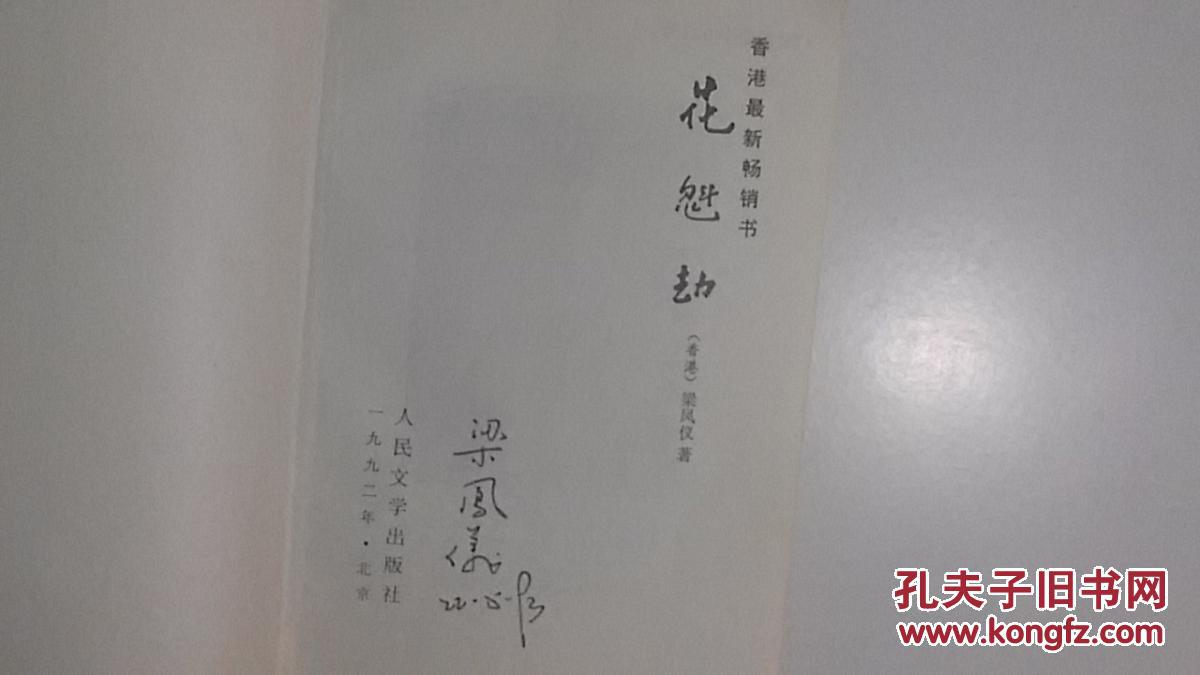 香港最新畅销书
花魁劫
（香港）梁凤仪 著
梁鳳儀
人民文学出版社
一九九二年·北京
孔夫子旧书网
www.kongfz.com